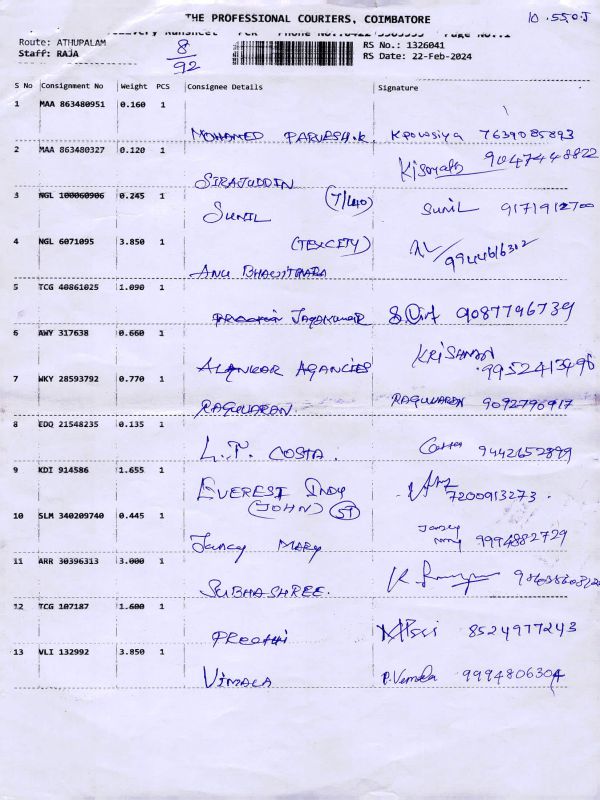 THE PROFESSIONAL COURIERS, COIMBATORE
10.550J
Delivery Runsheet
Page No.:1
Route: ATHUPALAM
Staff: RAJA
8
92
RS No.: 1326041
RS Date: 22-Feb-2024
S No Consignment No Weight PCS Consignee Details Signature
1 MAA 863480951 0.160 1
MOHAMED PARVESH.K. 7639085893
2 MAA 863480327 0.120 1
SIRAJUDDIN 9047448822
3 NGL 100060906 0.245 1 (7/440)
SUNIL SUNIL 9171912700
4 NGL 6071095 3.850 1 (TEXCITY)
ANU 9944616302
5 TCG 40861025 1.090 1
9087796739
6 AWY 317638 0.660 1
ALANKAR AGANCIES 9952413496
7 WKY 28593792 0.770 1
RAGUVARAN RAGUVARAN 9092790917
8 EDQ 21548235 0.135 1
L.T. COSTA. 9442652899
9 KDI 914586 1.655 1
EVEREST INDY
(JOHN) ST 7200913273.
10 SLM 340209740 0.445 1
JANCY MARY 9994882729
11 ARR 30396313 3.000 1
SUBHASHREE.
12 TCG 107187 1.600 1
PREETHI 8524977243
13 VLI 132992 3.850 1
VIMALA P. Vemala 9994806304